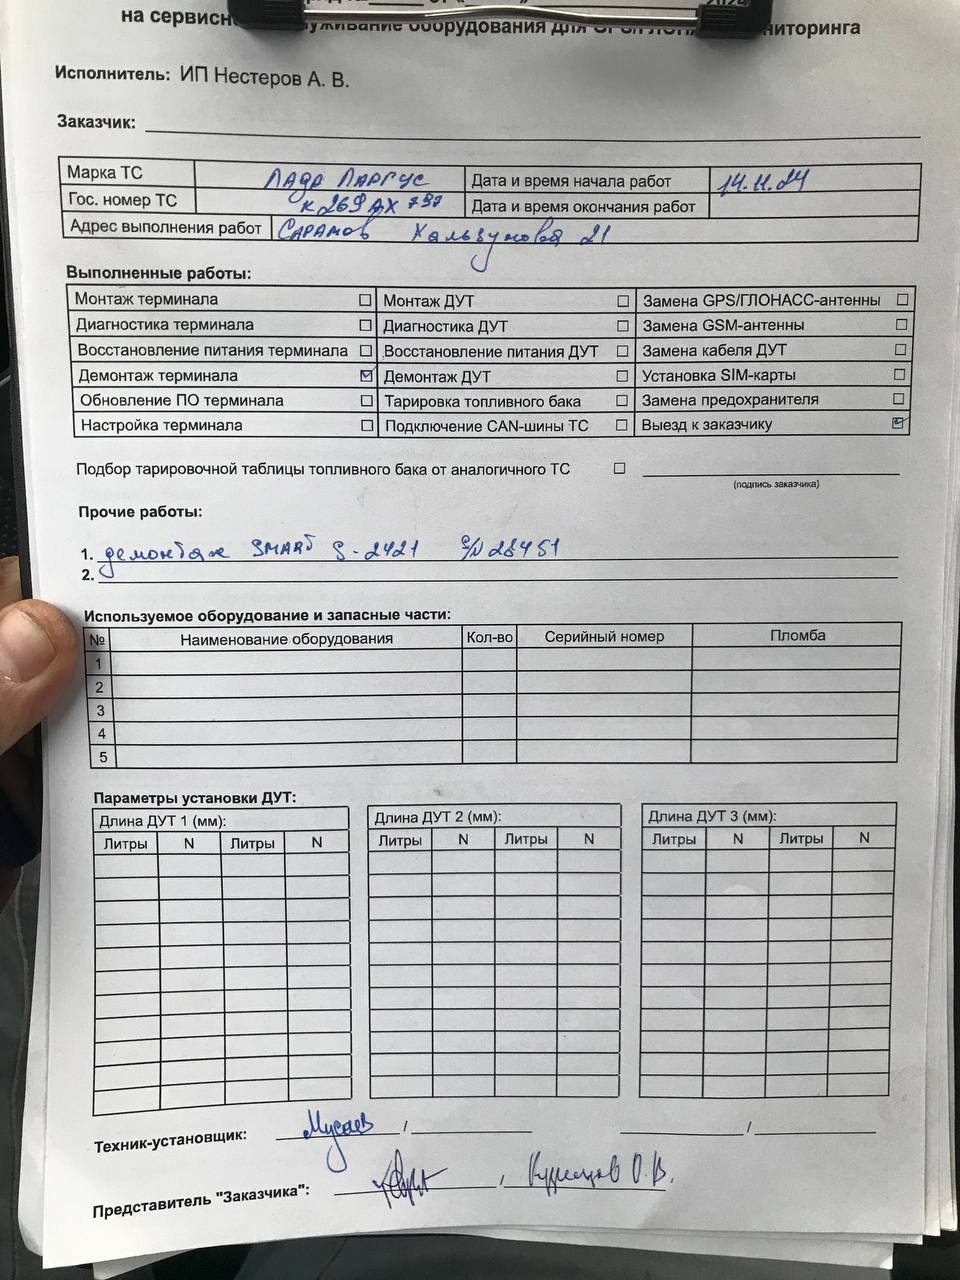 2024
на сервисн
уживание оборудования для
ниторинга
Исполнитель: ИП Нестеров А. В.
Заказчик:
Марка ТС Лада Ларгус Дата и время начала работ 14.11.24
Гос. номер ТС К269АХ 797 Дата и время окончания работ
Адрес выполнения работ Саратов 21
Выполненные работы:
Монтаж терминала ☐ Монтаж ДУТ ☐ Замена GPS/ГЛОНАСС-антенны ☐
Диагностика терминала ☐ Диагностика ДУТ ☐ Замена GSM-антенны ☐
Восстановление питания терминала ☐ Восстановление питания ДУТ ☐ Замена кабеля ДУТ ☐
Демонтаж терминала ☑ Демонтаж ДУТ ☐ Установка SIM-карты ☐
Обновление ПО терминала ☐ Тарировка топливного бака ☐ Замена предохранителя ☐
Настройка терминала ☐ Подключение CAN-шины ТС ☐ Выезд к заказчику ☑
Подбор тарировочной таблицы топливного бака от аналогичного ТС ☐
(подпись заказчика)
Прочие работы:
1. демонтаж SMART S-2421 S/N 28451
2.
Используемое оборудование и запасные части:
№ Наименование оборудования Кол-во Серийный номер Пломба
1
2
3
4
5
Параметры установки ДУТ:
Длина ДУТ 1 (мм): Длина ДУТ 2 (мм): Длина ДУТ 3 (мм):
Литры N Литры N Литры N Литры N Литры N Литры N
Техник-установщик: Мусаев / /
Представитель "Заказчика": , Кузнецов О.В.